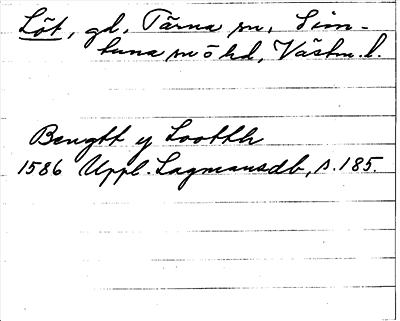 Löt, gd, Tärna sn, Sim-
tuna m ö hd, Västm. l.
Bengtt y Lootth
1586 Uppl. Lagmansdb, s. 185.